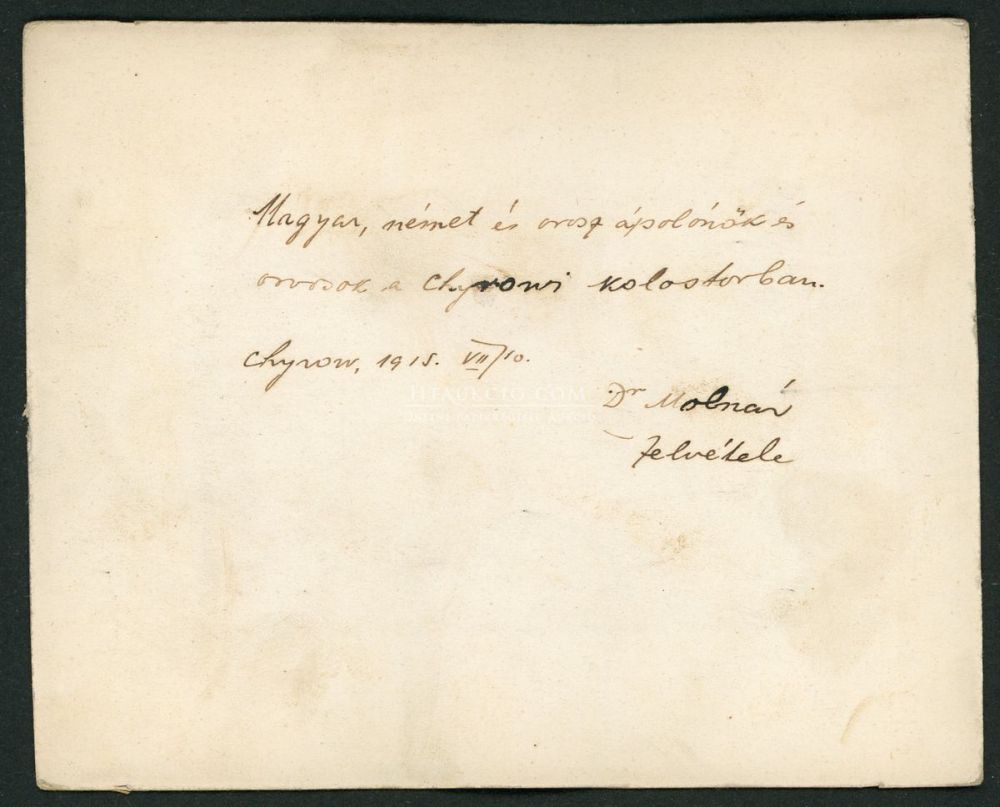 Magyar, német és orosz ápolónők és
orvosok a Chyrowi kolostorban.
Chyrow, 1915. VII/10.
Dr Molnár
felvétele